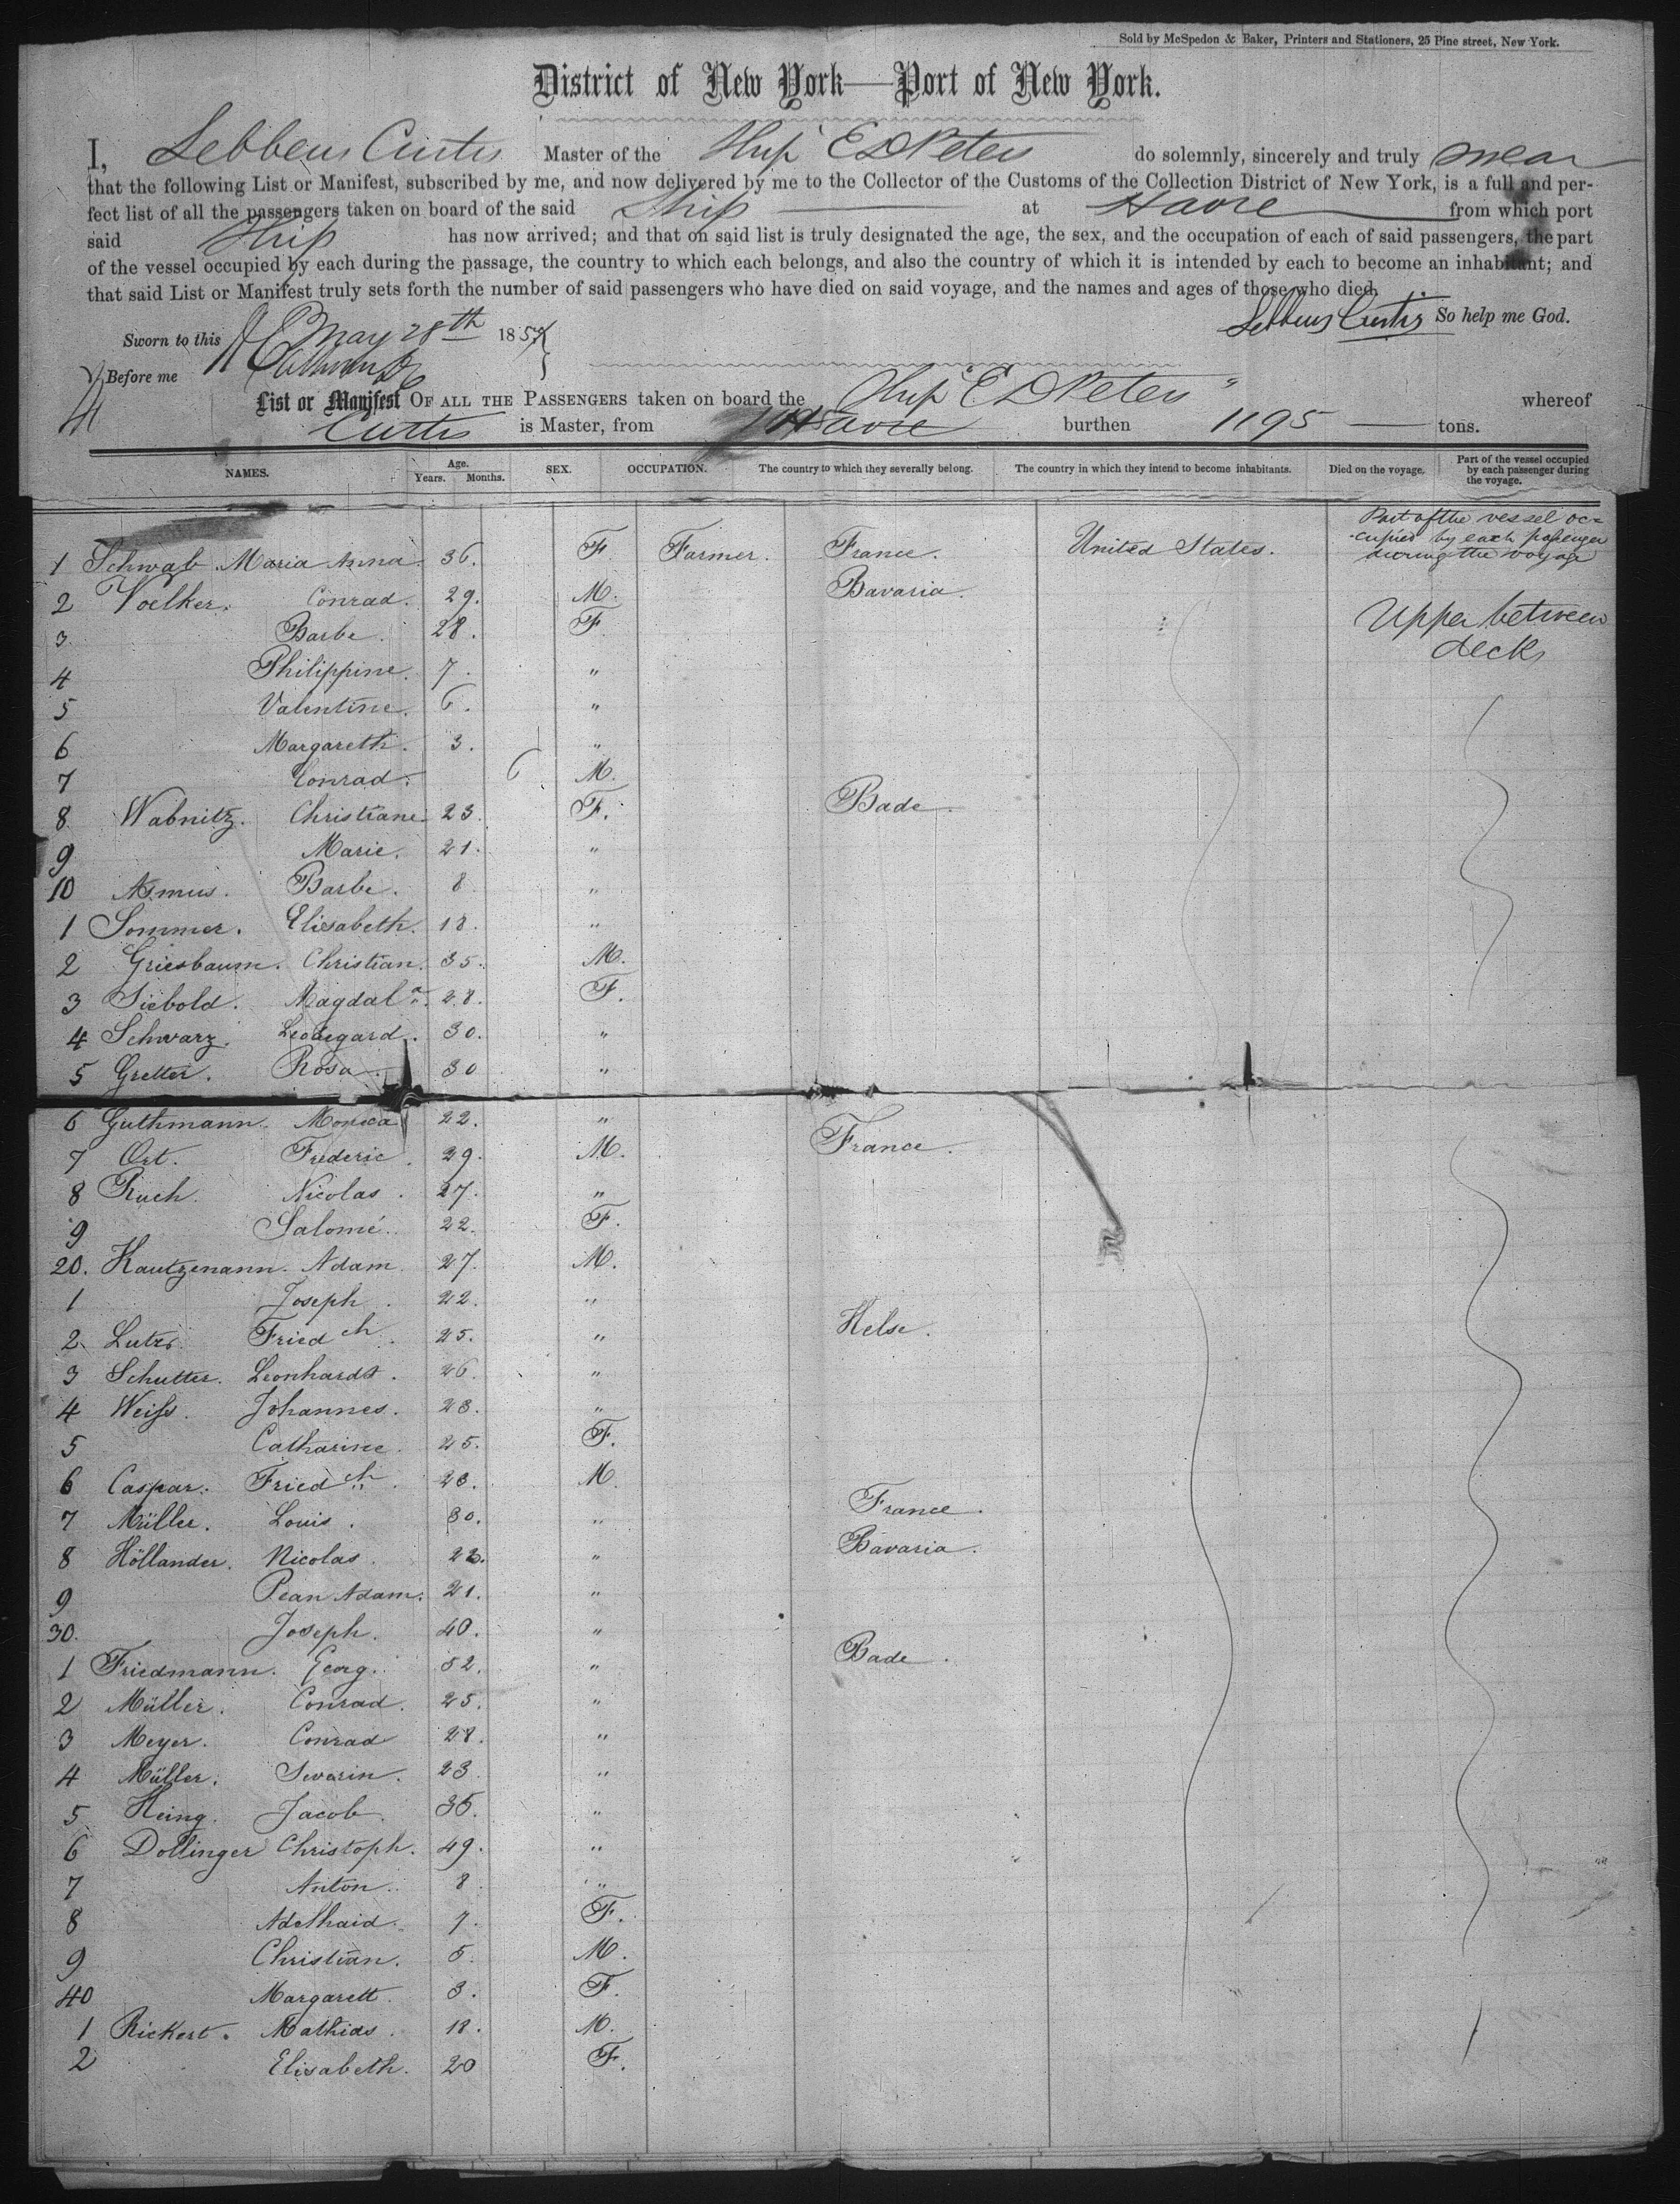 Sold by McSpedon & Baker, Printers and Stationers, 25 Pine street, New York.
District of New York—Port of New York.
I, Lebbeus Curtis Master of the Ship E D Peters do solemnly, sincerely and truly swear
that the following List or Manifest, subscribed by me, and now delivered by me to the Collector of the Customs of the Collection District of New York, is a full and per-
fect list of all the passengers taken on board of the said Ship at Havre from which port
said Ship has now arrived; and that on said list is truly designated the age, the sex, and the occupation of each of said passengers, the part
of the vessel occupied by each during the passage, the country to which each belongs, and also the country of which it is intended by each to become an inhabitant; and
that said List or Manifest truly sets forth the number of said passengers who have died on said voyage, and the names and ages of those who died.
Sworn to this May 28th 1857 Lebbeus Curtis So help me God.
Before me
List or Manifest OF ALL THE PASSENGERS taken on board the Ship "E D Peters" whereof
Curtis is Master, from Havre burthen 1195 tons.
NAMES. Age. Years. Months. SEX. OCCUPATION. The country to which they severally belong. The country in which they intend to become inhabitants. Died on the voyage. Part of the vessel occupied by each passenger during the voyage.
Part of the vessel oc=
-cupied by each passenger
during the voyage
1 Schwab Maria Anna 36. F. Farmer. France. United States.
2 Voelker. Conrad. 29. M. Bavaria.
3 Barbe. 28. F. Upper between
4 Philippine. 7. " decks
5 Valentine. 6. "
6 Margareth. 3. "
7 Conrad. 6 M.
8 Wabnitz. Christiane. 23. F. Bade.
9 Marie. 21. "
10 Asmus. Barbe. 8 "
1 Sommer. Elisabeth. 18. "
2 Griesbaum. Christian. 35. M.
3 Siebold. Magdal a. 28. F.
4 Schwarz. Leodegard. 30. "
5 Gretter. Rosa. 30 "
6 Guthmann. Monica 22. "
7 Ort. Frederic. 29. M. France.
8 Ruch. Nicolas. 27. "
9 Salomé. 22. F.
20. Kautzmann. Adam. 27. M.
1 Joseph. 22. "
2 Lutz. Fried ch. 25. " Helse.
3 Schutter. Leonhardt. 26. "
4 Weiss. Johannes. 28. "
5 Catharine. 25. F.
6 Caspar. Fried ch. 28. M.
7 Müller. Louis. 30. " France.
8 Höllander. Nicolas. " Bavaria.
9 Pean Adam. 21. "
30. Joseph. 40. "
1 Friedmann. Georg. 52. " Bade.
2 Müller. Conrad. 25. "
3 Meyer. Conrad 28. "
4 Müller. Severin. 23. "
5 Heing. Jacob. 35. "
6 Dollinger Christoph. 49. "
7 Anton. 8 "
8 Adelhaid. 7. F.
9 Christian. 5. M.
40 Margarett. 3. F.
1 Rickert. Mathias. 18. M.
2 Elisabeth. 20 F.